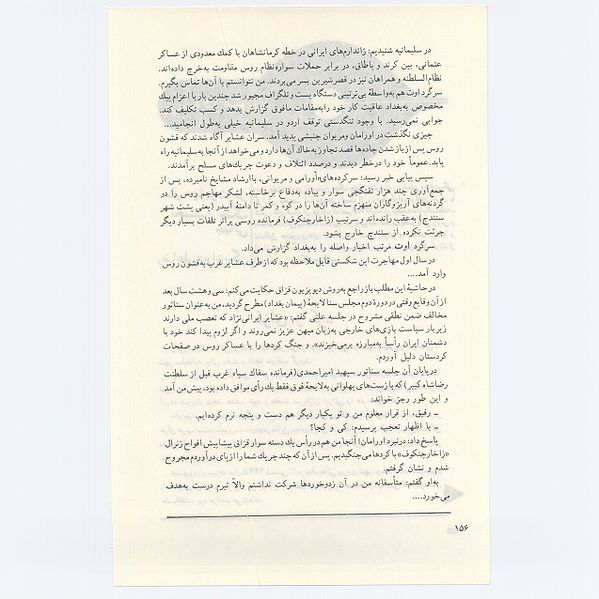 در سلیمانیه شنیدیم: ژاندارم‌های ایرانی در خطه کرمانشاهان با کمك معدودی از عساکر
عثمانی، بین کرند و باطاق، در برابر حملات سواره‌نظام روس مقاومت به‌خرج داده‌اند.
نظام السلطنه و همراهان نیز در قصرشیرین بسر می‌بردند. من نتوانستم با آن‌ها تماس بگیرم.
سرگرد اوت هم به‌واسطهٔ بی‌ترتیبی دستگاه پست و تلگراف مجبور شد چندین بار با اعزام پیك
مخصوص به‌بغداد عاقبت کار خود را به‌مقامات مافوق گزارش بدهد و کسب تکلیف کند.
جوابی نمی‌رسید. با وجود تنگدستی توقف اردو در سلیمانیه خیلی به‌طول انجامید...
چیزی نگذشت در اورامان و مریوان جنبشی پدید آمد. سران عشایر آگاه شدند که قشون
روس پس از باز شدن جاده‌ها قصد تجاوز به‌خاك آن‌ها دارد و می‌خواهد از آنجا به‌سلیمانیه راه
یابد. عموماً خود را درخطر دیدند و درصدد ائتلاف و دعوت چریك‌های مسلح برآمدند.
سپس پیاپی خبر رسید: سرکرده‌های اورامی و مریوانی، با ارشاد مشایخ نامبرده، پس از
جمع‌آوری چند هزار تفنگچی سوار و پیاده به‌دفاع برخاسته، لشکر مهاجم روس را در
گردنه‌های آریز و گاران منهزم ساخته آن‌ها را در کوه و کمر تا دامنهٔ آبیدر (یعنی پشت شهر
سنندج) به‌عقب رانده‌اند و سرتیپ (زاخارچنکوف) فرمانده روسی براثر تلفات بسیار دیگر
جرئت نکرده از سنندج خارج بشود.
سرگرد اوت مرتب اخبار واصله را به‌بغداد گزارش می‌داد.
در سال اول مهاجرت این شکستی قابل ملاحظه بود که از طرف عشایر غرب به‌قشون روس
وارد آمد....
در حاشیهٔ این مطلب باز راجع به‌روش دیویزیون قزاق حکایت می‌کنم: سی و هشت سال بعد
از آن وقایع وقتی در دورهٔ دوم مجلس سنا لایحهٔ (پیمان بغداد) مطرح گردید، من به‌عنوان سناتور
مخالف ضمن نطقی مشروح در جلسه علنی گفتم: «عشایر ایرانی‌نژاد که تعصب ملی دارند
زیر بار سیاست بازی‌های خارجی به‌زیان میهن عزیز نمی‌روند و اگر لزوم پیدا کند خود با
دشمنان ایران رأساً به‌مبارزه برمی‌خیزند». و جنگ کردها را با عساکر روس در صفحات
کردستان دلیل آوردم.
در پایان آن جلسه سناتور سپهبد امیراحمدی (فرمانده سفاك سپاه غرب قبل از سلطنت
رضاشاه کبیر) که با ژست‌های پهلوانی به‌لایحهٔ فوق فقط یك رأی موافق داده بود، پیش من آمد
و این طور رجز خواند:
ـ رفیق، از قرار معلوم من و تو یکبار دیگر هم دست و پنجه نرم کرده‌ایم.
ـ با اظهار تعجب پرسیدم: کی و کجا؟
پاسخ داد: در نبرد اورامان! آنجا من هم در رأس یك دسته سوار قزاق پیشاپیش افواج ژنرال
«زاخارچنکوف» با کردها می‌جنگیدیم. پس از آن که چند چریك شما را از پای درآوردم مجروح
شدم و نشان گرفتم.
به‌او گفتم: متأسفانه من در آن زدوخوردها شرکت نداشتم والاّ تیرم درست به‌هدف
می‌خورد....
۱۵۶